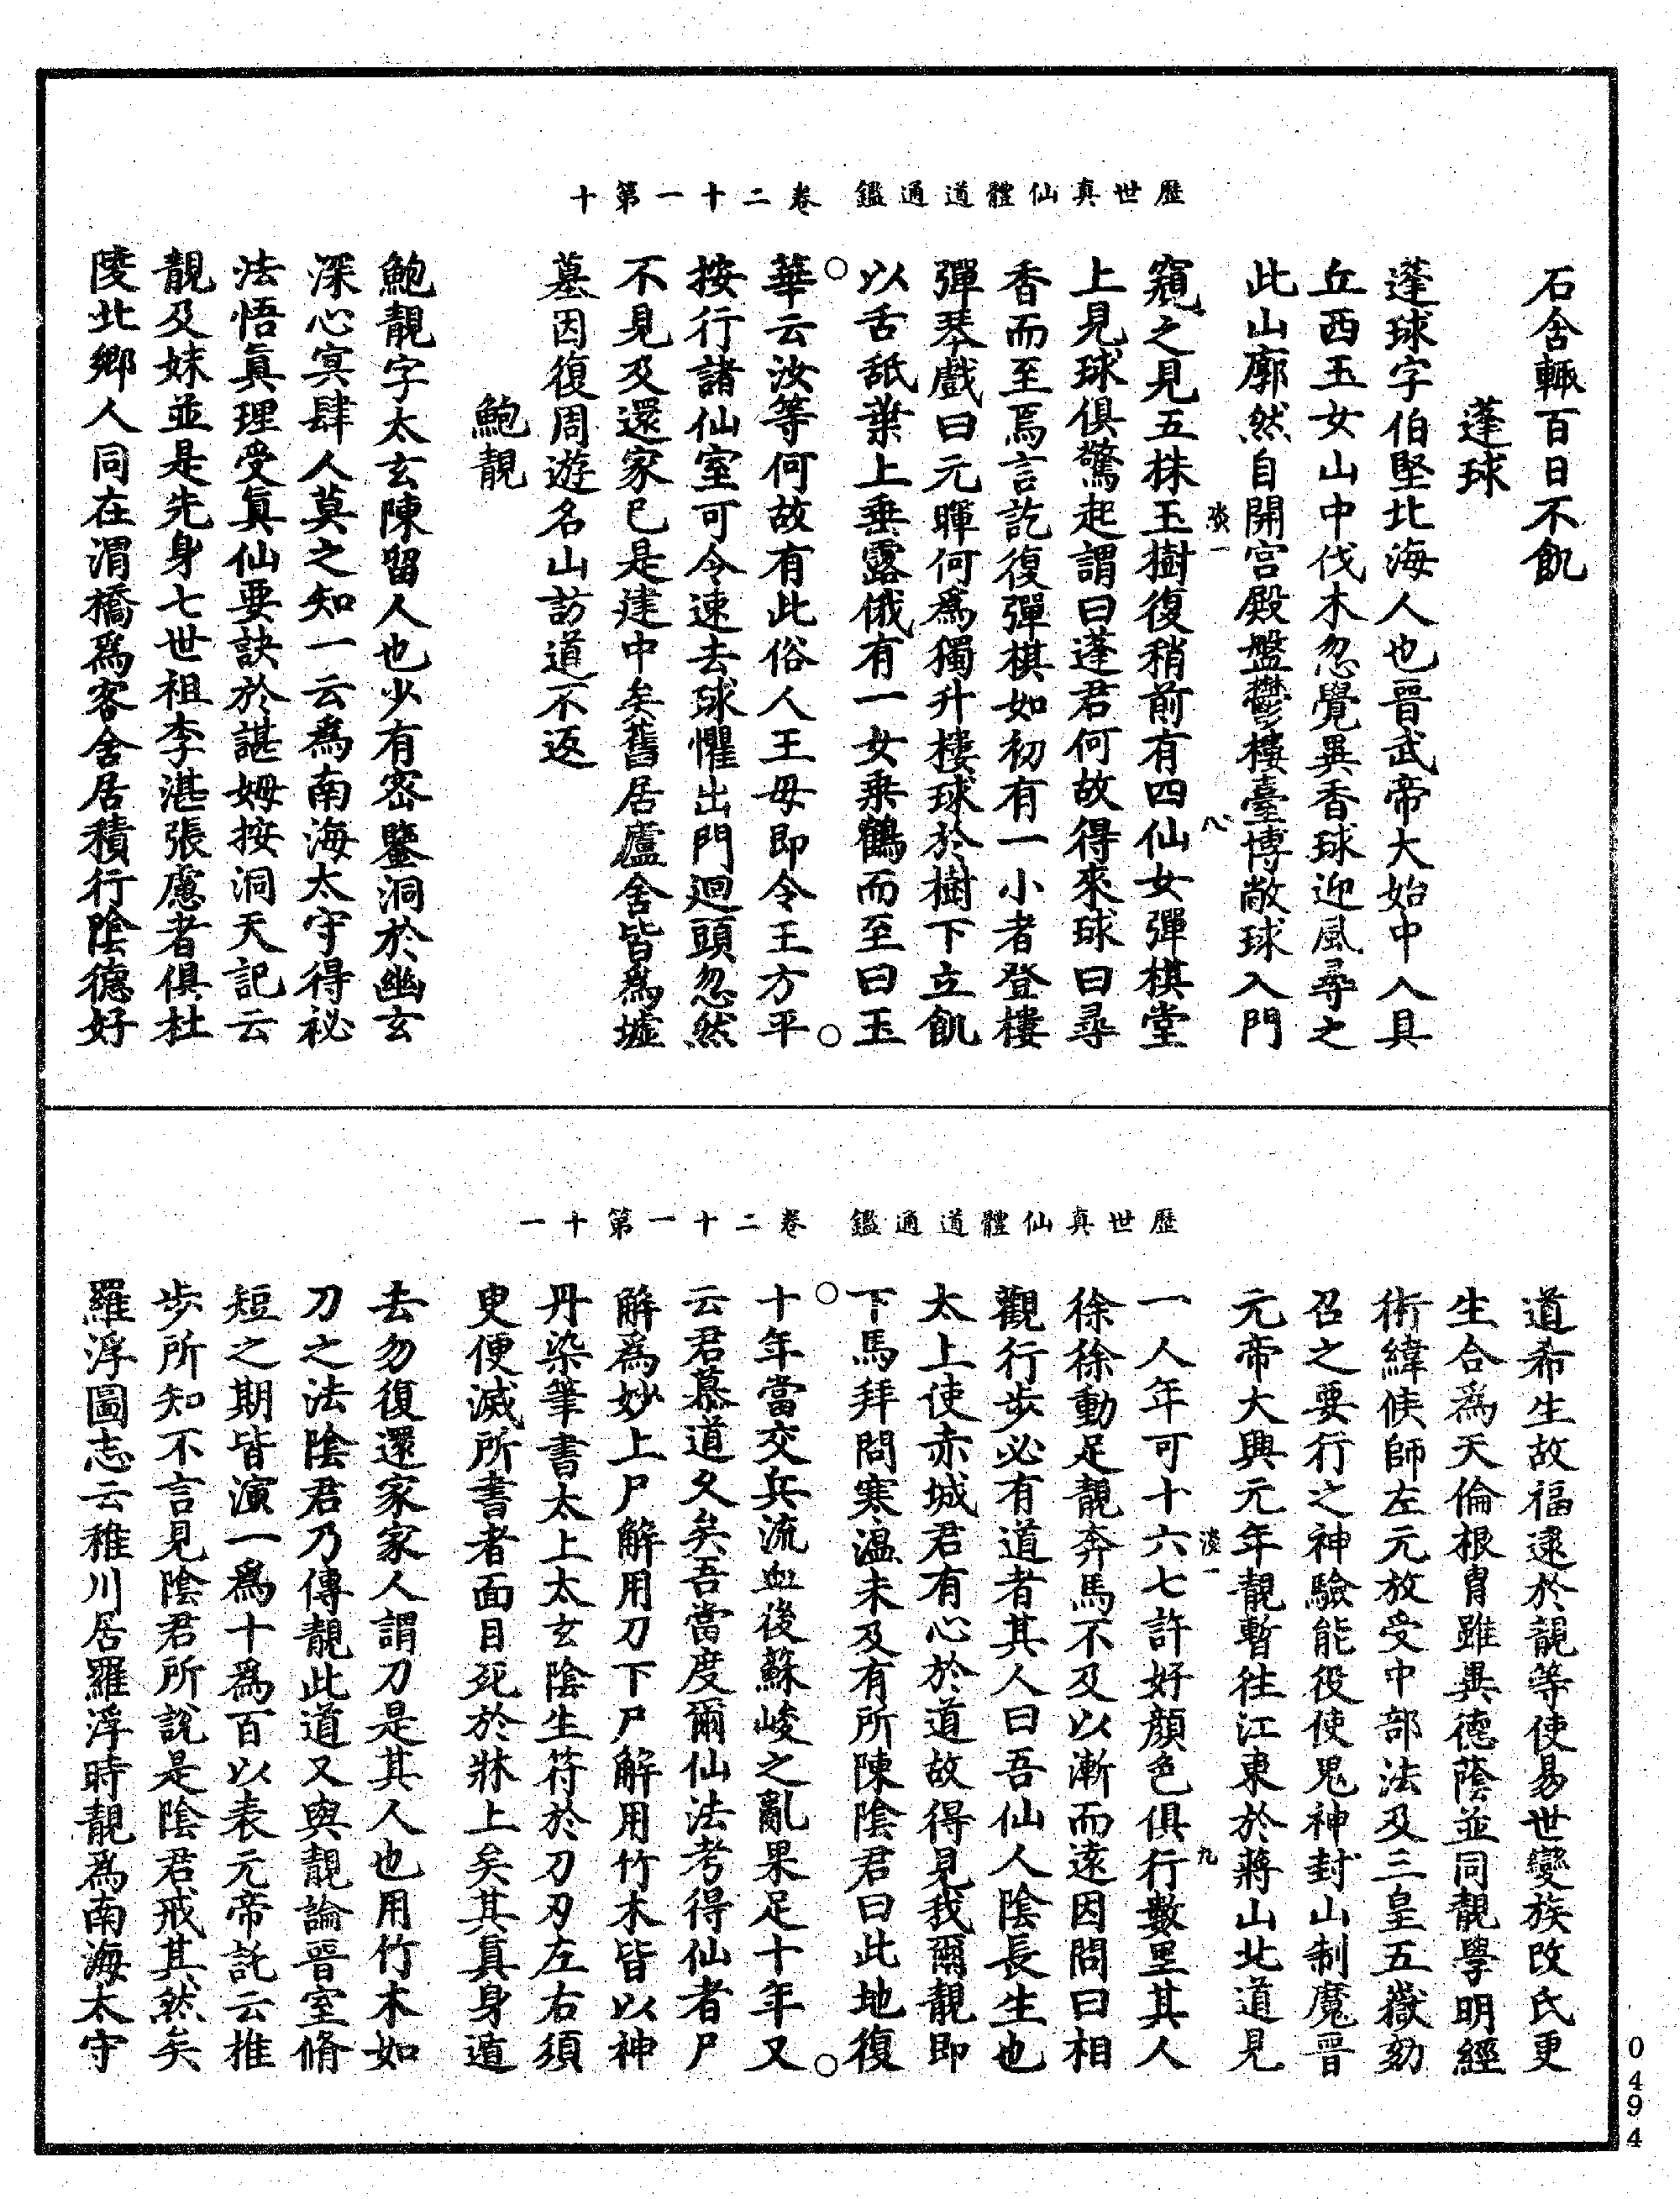 歷世真仙體道通鑑　卷二十一第十
石舍輒百日不飢
蓬球
蓬球字伯堅北海人也晉武帝大始中入具
丘西玉女山中伐木忽覺異香球迎風尋之
此山廓然自開宮殿盤鬱樓臺博敞球入門
窺之見五株玉樹復稍前有四仙女彈棋堂
上見球俱驚起謂曰蓬君何故得來球曰尋
香而至焉言訖復彈棋如初有一小者登樓
彈琴戲曰元暉何為獨升樓球於樹下立飢
以舌舐葉上垂露俄有一女乘鶴而至曰玉
華云汝等何故有此俗人王母即令王方平
按行諸仙室可令速去球懼出門迴頭忽然
不見及還家已是建中矣舊居廬舍皆為墟
墓因復周遊名山訪道不返
鮑靚
鮑靚字太玄陳留人也少有密鑒洞於幽玄
深心冥肆人莫之知一云為南海太守得祕
法悟真理受真仙要訣於諶姆按洞天記云
靚及妹並是先身七世祖李湛張慮者俱杜
陵北鄉人同在渭橋為客舍居積行陰德好
歷世真仙體道通鑑　卷二十一第十一
道希生故福逮於靚等使易世變族改氏更
生合為天倫根胄雖異德蔭並同靚學明經
術緯候師左元放受中部法及三皇五嶽劾
召之要行之神驗能役使鬼神封山制魔晉
元帝大興元年靚暫往江東於蔣山北道見
淡一　九
一人年可十六七許好顏色俱行數里其人
徐徐動足靚奔馬不及以漸而遠因問曰相
觀行步必有道者其人曰吾仙人陰長生也
太上使赤城君有心於道故得見我爾靚即
下馬拜問寒溫未及有所陳陰君曰此地復
十年當交兵流血後蘇峻之亂果足十年又
云君慕道久矣吾當度爾仙法考得仙者尸
解為妙上尸解用刀下尸解用竹木皆以神
丹染筆書太上太玄陰生符於刀刃左右須
臾便滅所書者面目死於牀上矣其真身遁
去勿復還家家人謂刀是其人也用竹木如
刀之法陰君乃傳靚此道又與靚論晉室脩
短之期皆演一為十為百以表元帝託云推
步所知不言見陰君所說是陰君戒其然矣
羅浮圖志云稚川居羅浮時靚為南海太守
0494